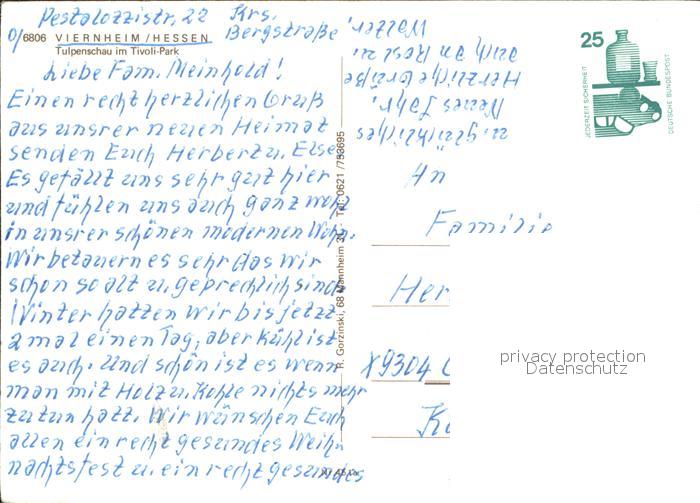 Pestalozzistr. 22 Krs.
0/6806 VIERNHEIM/HESSEN Bergstraße
Tulpenschau im Tivoli-Park
Liebe Fam. Meinhold!
Einen recht herzlichen Gruß
aus unsrer neuen Heimat
senden Euch Herbert u. Else
Es gefällt uns sehr gut hier
und fühlen uns auch ganz wohl
in unsrer schönen modernen Wohn.
Wir betauern es sehr das wir
schon so alt u. geprechlich sind
Winter hatten wir bis jetzt
2 mal einen Tag, aber kühl ist
es auch. Und schön ist es wenn
man mit Holz u. Kohle nichts mehr
zu tun hatt. Wir wünschen Euch
allen ein recht gesundes Weih-
nachtsfest u. ein recht gesundes
u. glückliches
Neues Jahr.
Herzliche Grüße
auch an Rest u.
Walter.
R. Gorzinski, 68 Mannheim 31 Tel. 0621/753695
25
JEDERZEIT SICHERHEIT
DEUTSCHE BUNDESPOST
An
Familie
Her
X9304
privacy protection
Datenschutz